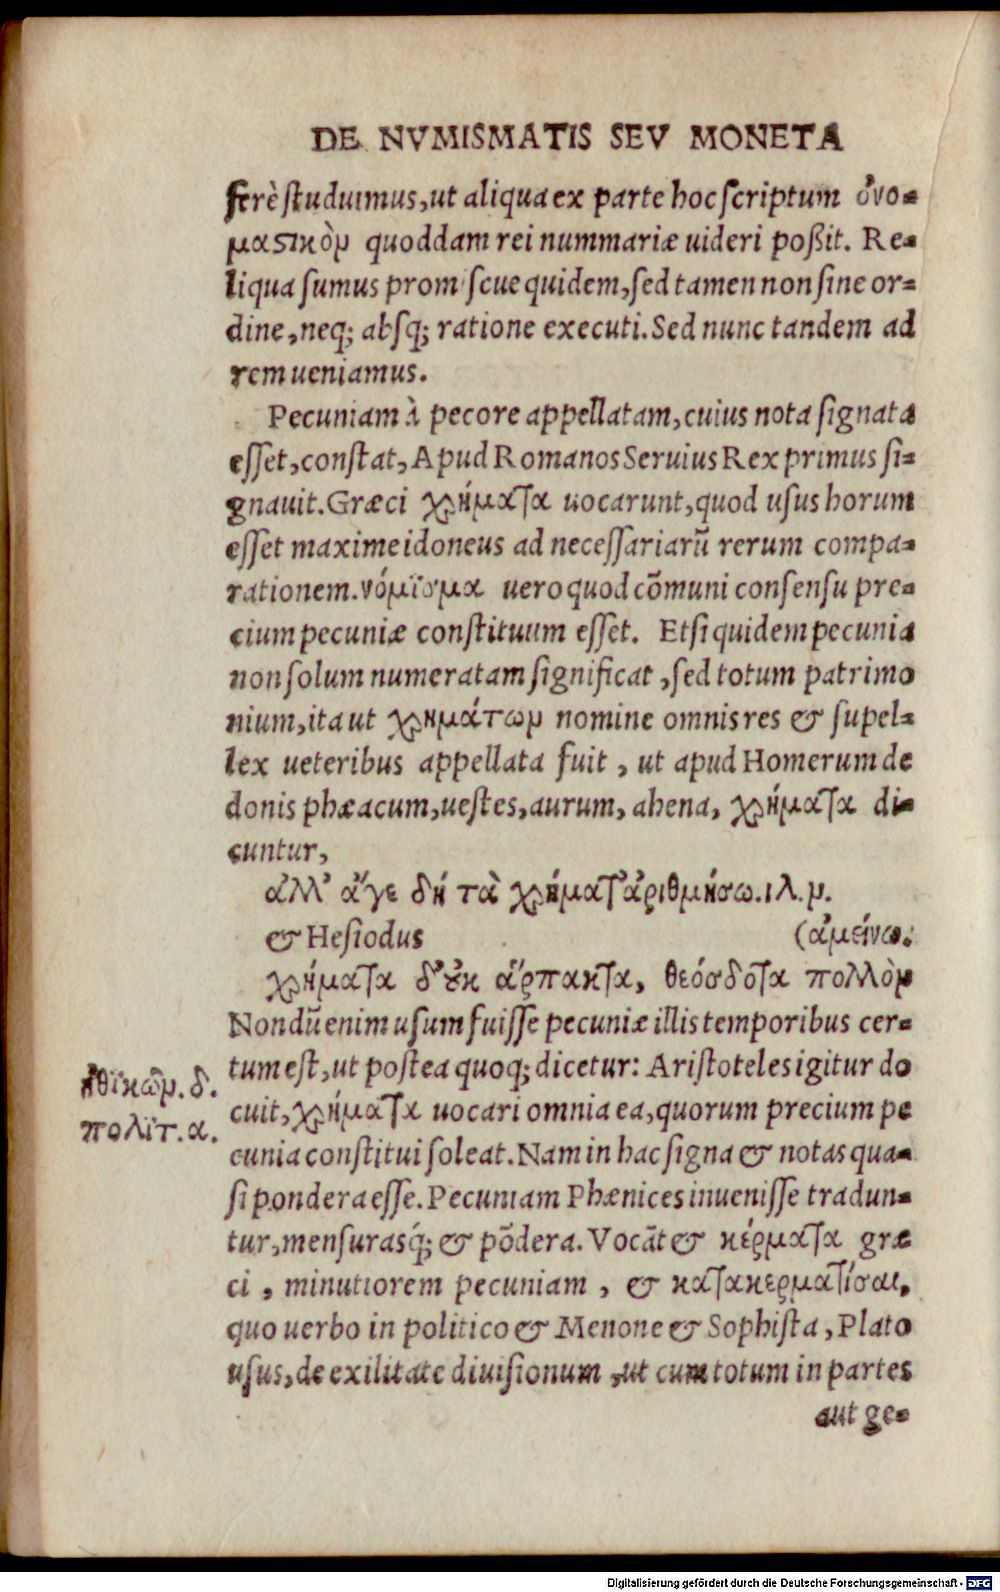 DE NVMISMATIS SEV MONETA
ferè ſtuduimus, ut aliqua ex parte hoc ſcriptum ὀνο-
μαϛικὸμ quoddam rei nummariæ uideri poßit. Re-
liqua ſumus promiſcue quidem, ſed tamen non ſine or-
dine, neq; abſq; ratione executi. Sed nunc tandem ad
rem ueniamus.
Pecuniam à pecore appellatam, cuius nota ſignata
eſſet, conſtat, Apud Romanos Seruius Rex primus ſi-
gnauit. Græci χρήματα uocarunt, quod uſus horum
eſſet maxime idoneus ad neceſſariarũ rerum compa-
rationem. νόμϊσμα uero quod cõmuni conſenſu pre-
cium pecuniæ conſtituum eſſet. Etſi quidem pecunia
non ſolum numeratam ſignificat, ſed totum patrimo
nium, ita ut χρημάτωμ nomine omnis res & ſupel-
lex ueteribus appellata fuit, ut apud Homerum de
donis phæacum, ueſtes, aurum, ahena, χρήματα di-
cuntur,
ἀλλ' ἄγε δή τὰ χρήματ' ἀριθμήσω. ιλ. μ.
& Heſiodus (ἀμείνω:
χρήματα δ' ȣκ ἅρπακτα, θεόσδοτα πολλὸμ
Nondũ enim uſum fuiſſe pecuniæ illis temporibus cer-
tum eſt, ut poſtea quoq; dicetur: Ariſtoteles igitur do
cuit, χρήματα uocari omnia ea, quorum precium pe
cunia conſtitui ſoleat. Nam in hac ſigna & notas qua-
ſi pondera eſſe. Pecuniam Phænices inueniſſe tradun-
tur, menſurasq́; & põdera. Vocãt & κέρματα græ
ci, minutiorem pecuniam, & κατακερματίσαι,
quo uerbo in politico & Menone & Sophiſta, Plato
uſus, de exilitate diuiſionum, ut cum totum in partes
aut ge-
ἠθϊκῶμ. δ.
πολϊτ. α.
Digitalisierung gefördert durch die Deutsche Forschungsgemeinschaft - DFG